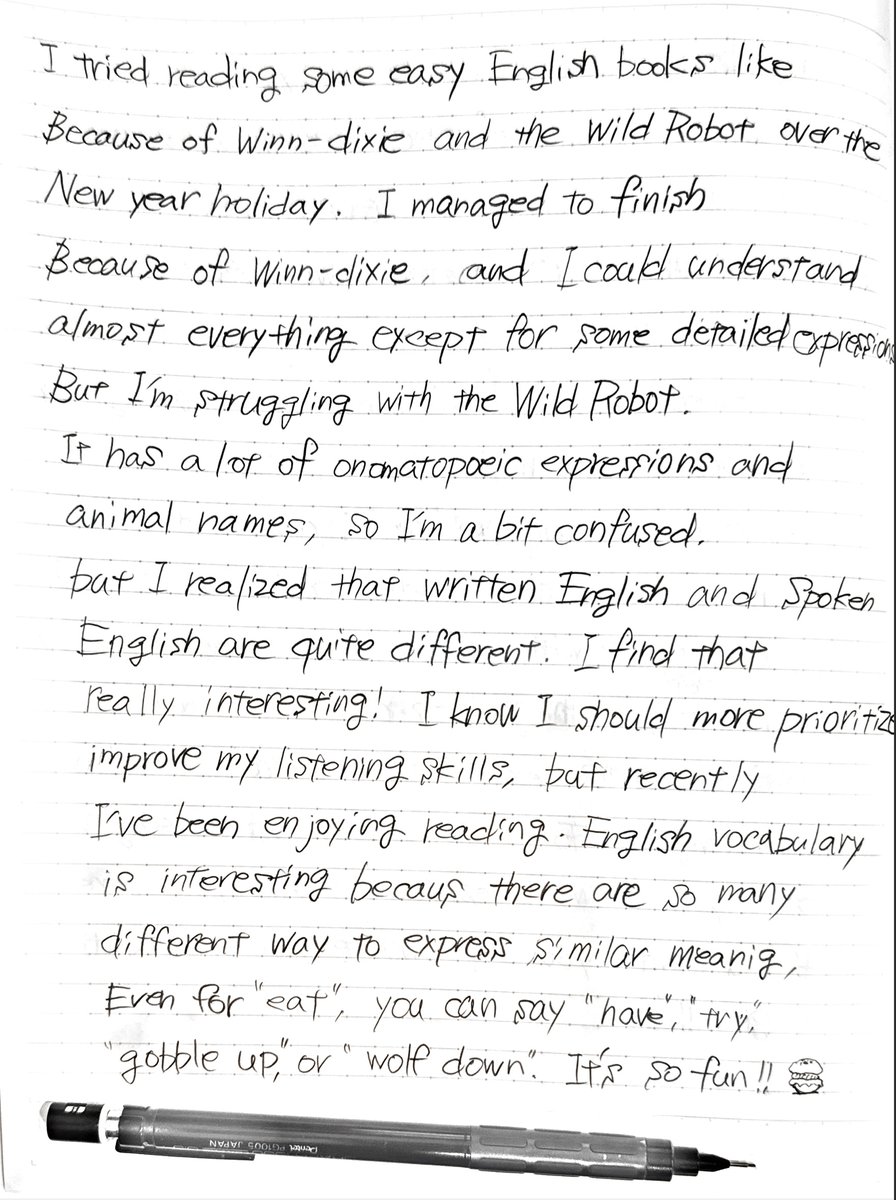 I tried reading some easy English books like
Because of Winn-dixie and the Wild Robot over the
New year holiday. I managed to finish
Because of Winn-dixie, and I could understand
almost everything except for some detailed expressions
But I'm struggling with the Wild Robot.
It has a lot of onomatopoeic expressions and
animal names, so I'm a bit confused.
but I realized that written English and Spoken
English are quite different. I find that
really interesting! I know I should more prioritize
improve my listening skills, but recently
I've been enjoying reading. English vocabulary
is interesting becaus there are so many
different way to express similar meanig,
Even for "eat", you can say "have", "try,"
"gobble up," or "wolf down". It's so fun!!
Pentel PG1005 JAPAN